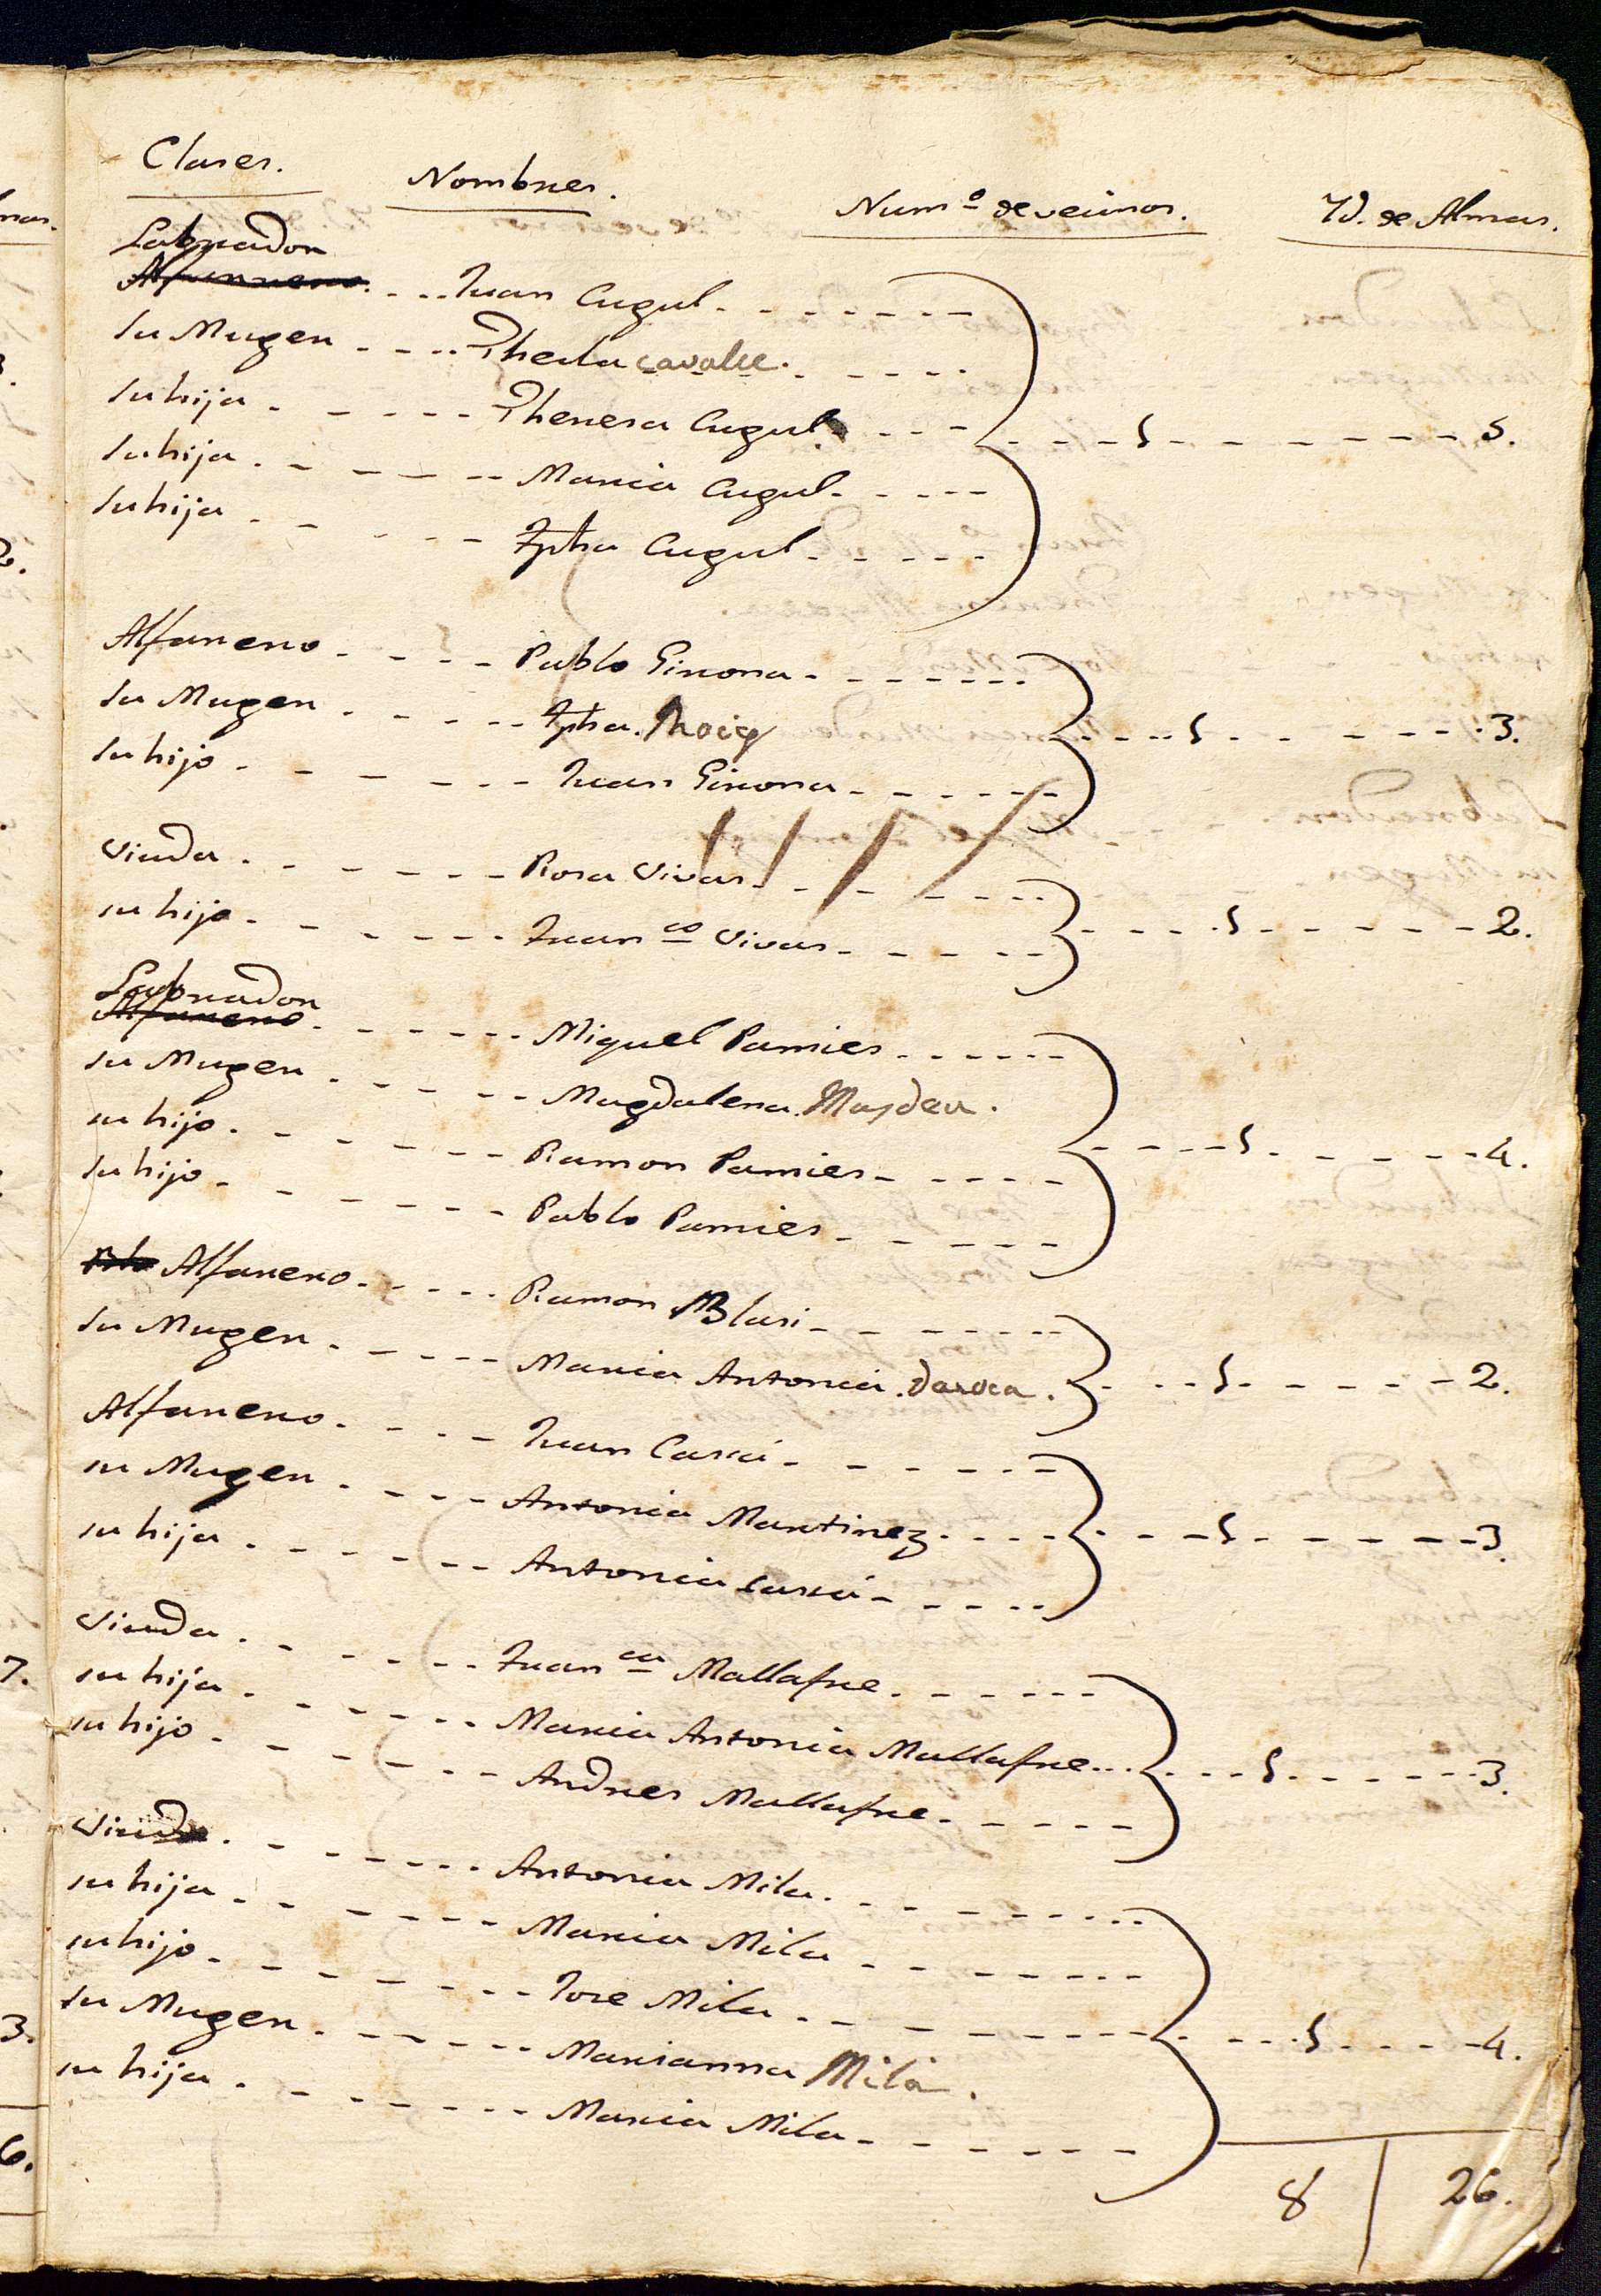 Clases. Nombres. Num.º de vecinos. Yd. de Almas.
Labrador
Alfarrero. Juan Cugul
Su Muger Thecla Cavalle.
Su hija Theresa Cugul
Su hija Maria Cugul 1 5.
Su hija Jpha Cugul
Alfarero Pablo Girona
Su Muger Jpha. Roig 1 3.
Su hijo Juan Girona
Viuda Rosa Vivas
su hijo Fran.co Vivas 1 2.
Labrador
Alfarero Miguel Pamies
su Muger Magdalena Masdeu.
su hijo Ramon Pamies 1 4.
Su hijo Pablo Pamies
Alfarero Ramon Blasi
Su Muger Maria Antonia Daroca. 1 2.
Alfarero Juan Casxi
su Muger Antonia Martinez 1 3.
su hija Antonia Casxi
Viuda Fran.ca Mallafre
su hija Maria Antonia Mallafre 1 3.
su hijo Andres Mallafre
Viuda Antonia Mila
su hija Maria Mila
su hijo Jose Mila 1 4.
su Muger Marianna Milá.
su hija Maria Mila
8 26.